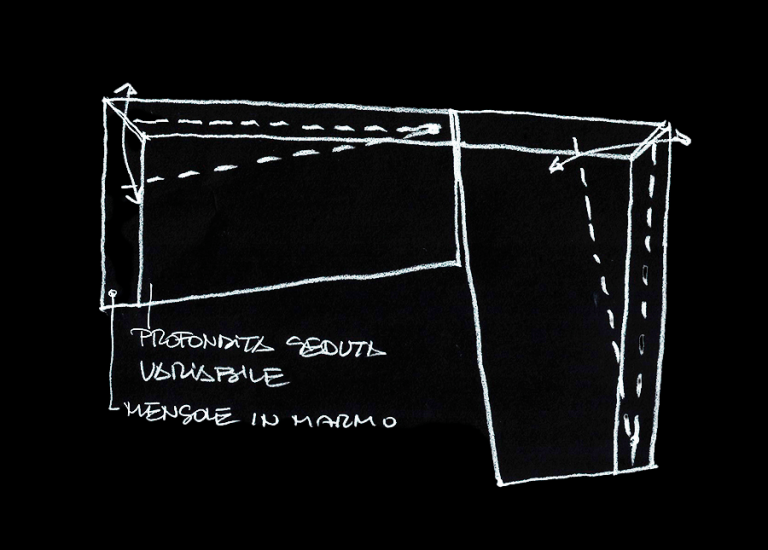 PROFONDITA SEDUTA
VARIABILE
MENSOLE IN MARMO